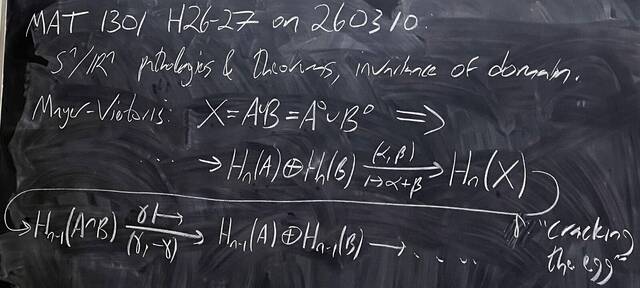 MAT 1301 H26-27 on 260310:
Sⁿ/ℝⁿ pathologies & theorems, invariance of domain.
Mayer-Vietoris: X=A∪B=A°∪B° ⟹
... → Hn(A)⊕Hn(B) (α,β) ↦α+β → Hn(X)
→ Hn-1(A∩B) γ↦ (γ,-γ) → Hn-1(A)⊕Hn-1(B) → .....
"cracking
the egg"